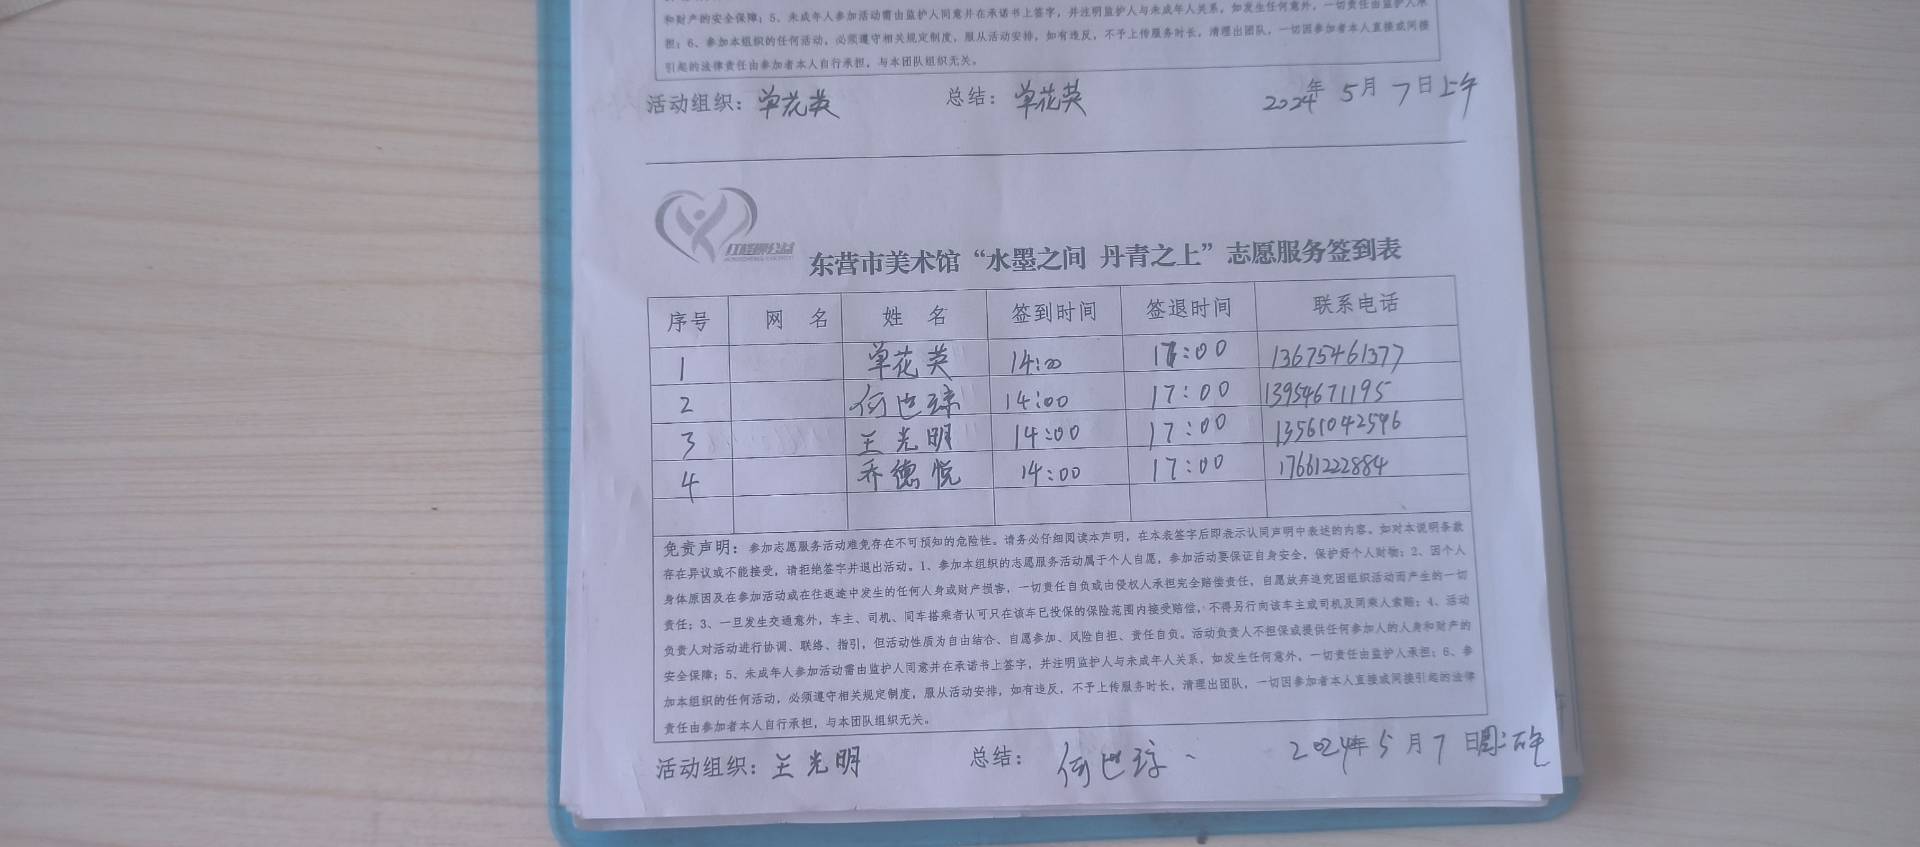 和财产的安全保障；5、未成年人参加活动需由监护人同意并在承诺书上签字，并注明监护人与未成年人关系，如发生任何意外，一切责任由监护人承
担；6、参加本组织的任何活动，必须遵守相关规定制度，服从活动安排，如有违反，不予上传服务时长，清理出团队，一切因参加者本人直接或间接
引起的法律责任由参加者本人自行承担，与本团队组织无关。
活动组织：单花英 总结：单花英 2024年5月7日上午
东营市美术馆“水墨之间 丹青之上”志愿服务签到表
序号 网 名 姓 名 签到时间 签退时间 联系电话
1 单花英 14:00 17:00 13675461377
2 何世琼 14:00 17:00 13954671195
3 王光明 14:00 17:00 13561042596
4 乔德悦 14:00 17:00 17661222884
免责声明：参加志愿服务活动难免存在不可预知的危险性。请务必仔细阅读本声明，在本表签字后即表示认同声明中表述的内容。如对本说明条款
存在异议或不能接受，请拒绝签字并退出活动。1、参加本组织的志愿服务活动属于个人自愿，参加活动要保证自身安全，保护好个人财物；2、因个人
身体原因及在参加活动或在往返途中发生的任何人身或财产损害，一切责任自负或由侵权人承担完全赔偿责任，自愿放弃追究因组织活动而产生的一切
责任；3、一旦发生交通意外，车主、司机、同车搭乘者认可只在该车已投保的保险范围内接受赔偿，不得另行向该车主或司机及同乘人索赔；4、活动
负责人对活动进行协调、联络、指引，但活动性质为自由结合、自愿参加、风险自担、责任自负。活动负责人不担保或提供任何参加人的人身和财产的
安全保障；5、未成年人参加活动需由监护人同意并在承诺书上签字，并注明监护人与未成年人关系，如发生任何意外，一切责任由监护人承担；6、参
加本组织的任何活动，必须遵守相关规定制度，服从活动安排，如有违反，不予上传服务时长，清理出团队，一切因参加者本人直接或间接引起的法律
责任由参加者本人自行承担，与本团队组织无关。
活动组织：王光明 总结：何世琼 2024年5月7日